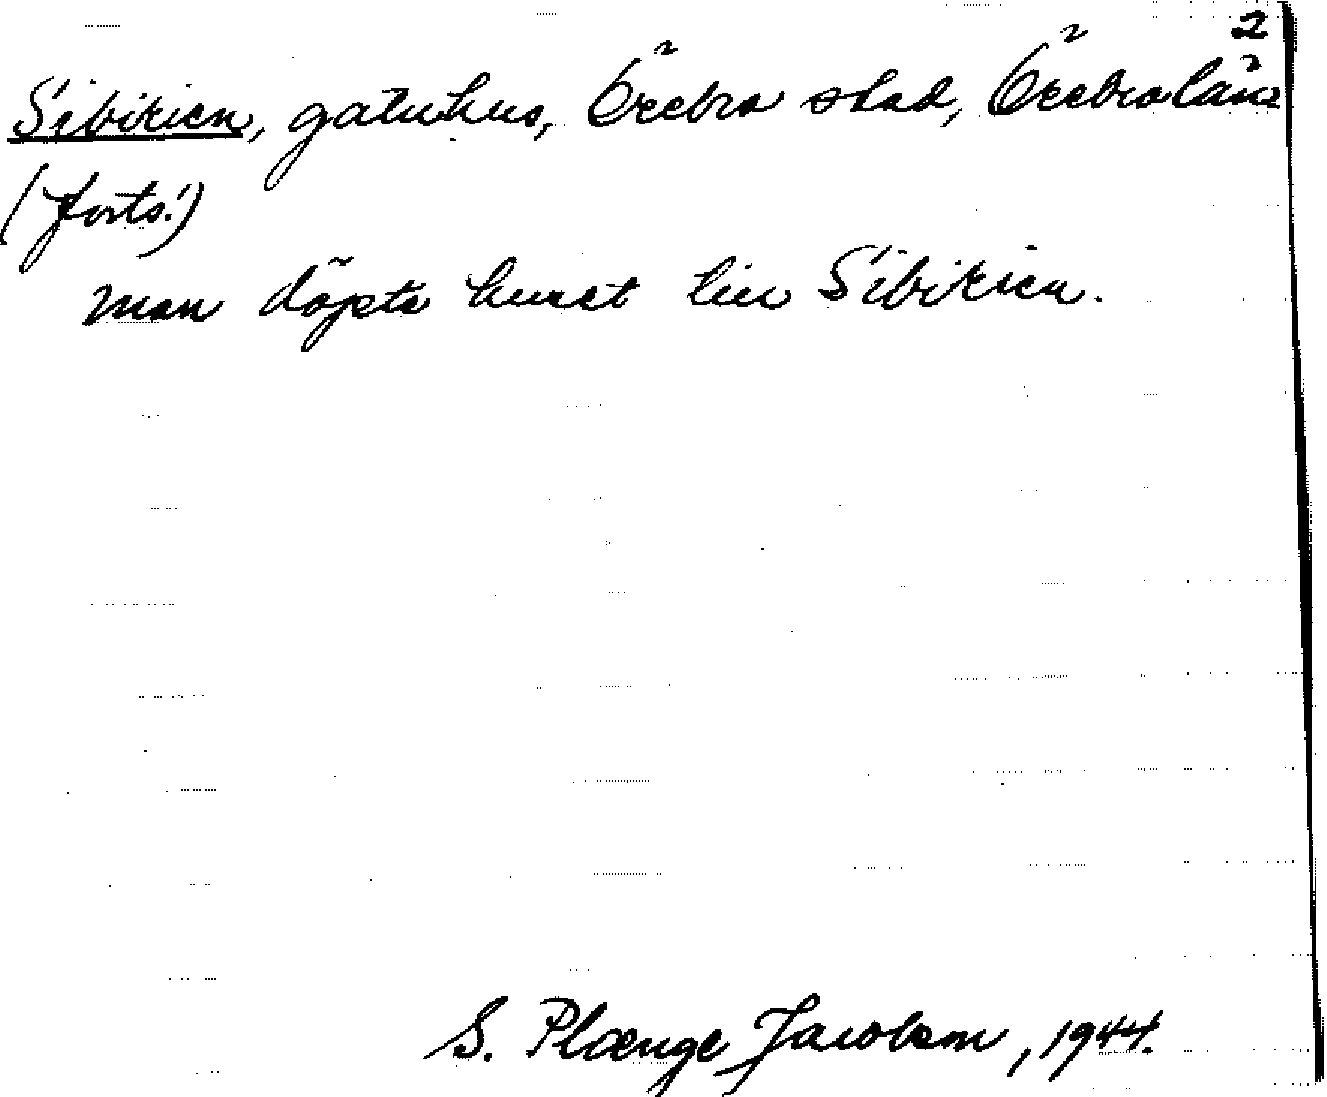 2
Sibirien, gatuhus, Örebro stad, Örebro län
(forts.)
man döpte huset till Sibirien.
S. Plænge Jacobson, 1944.